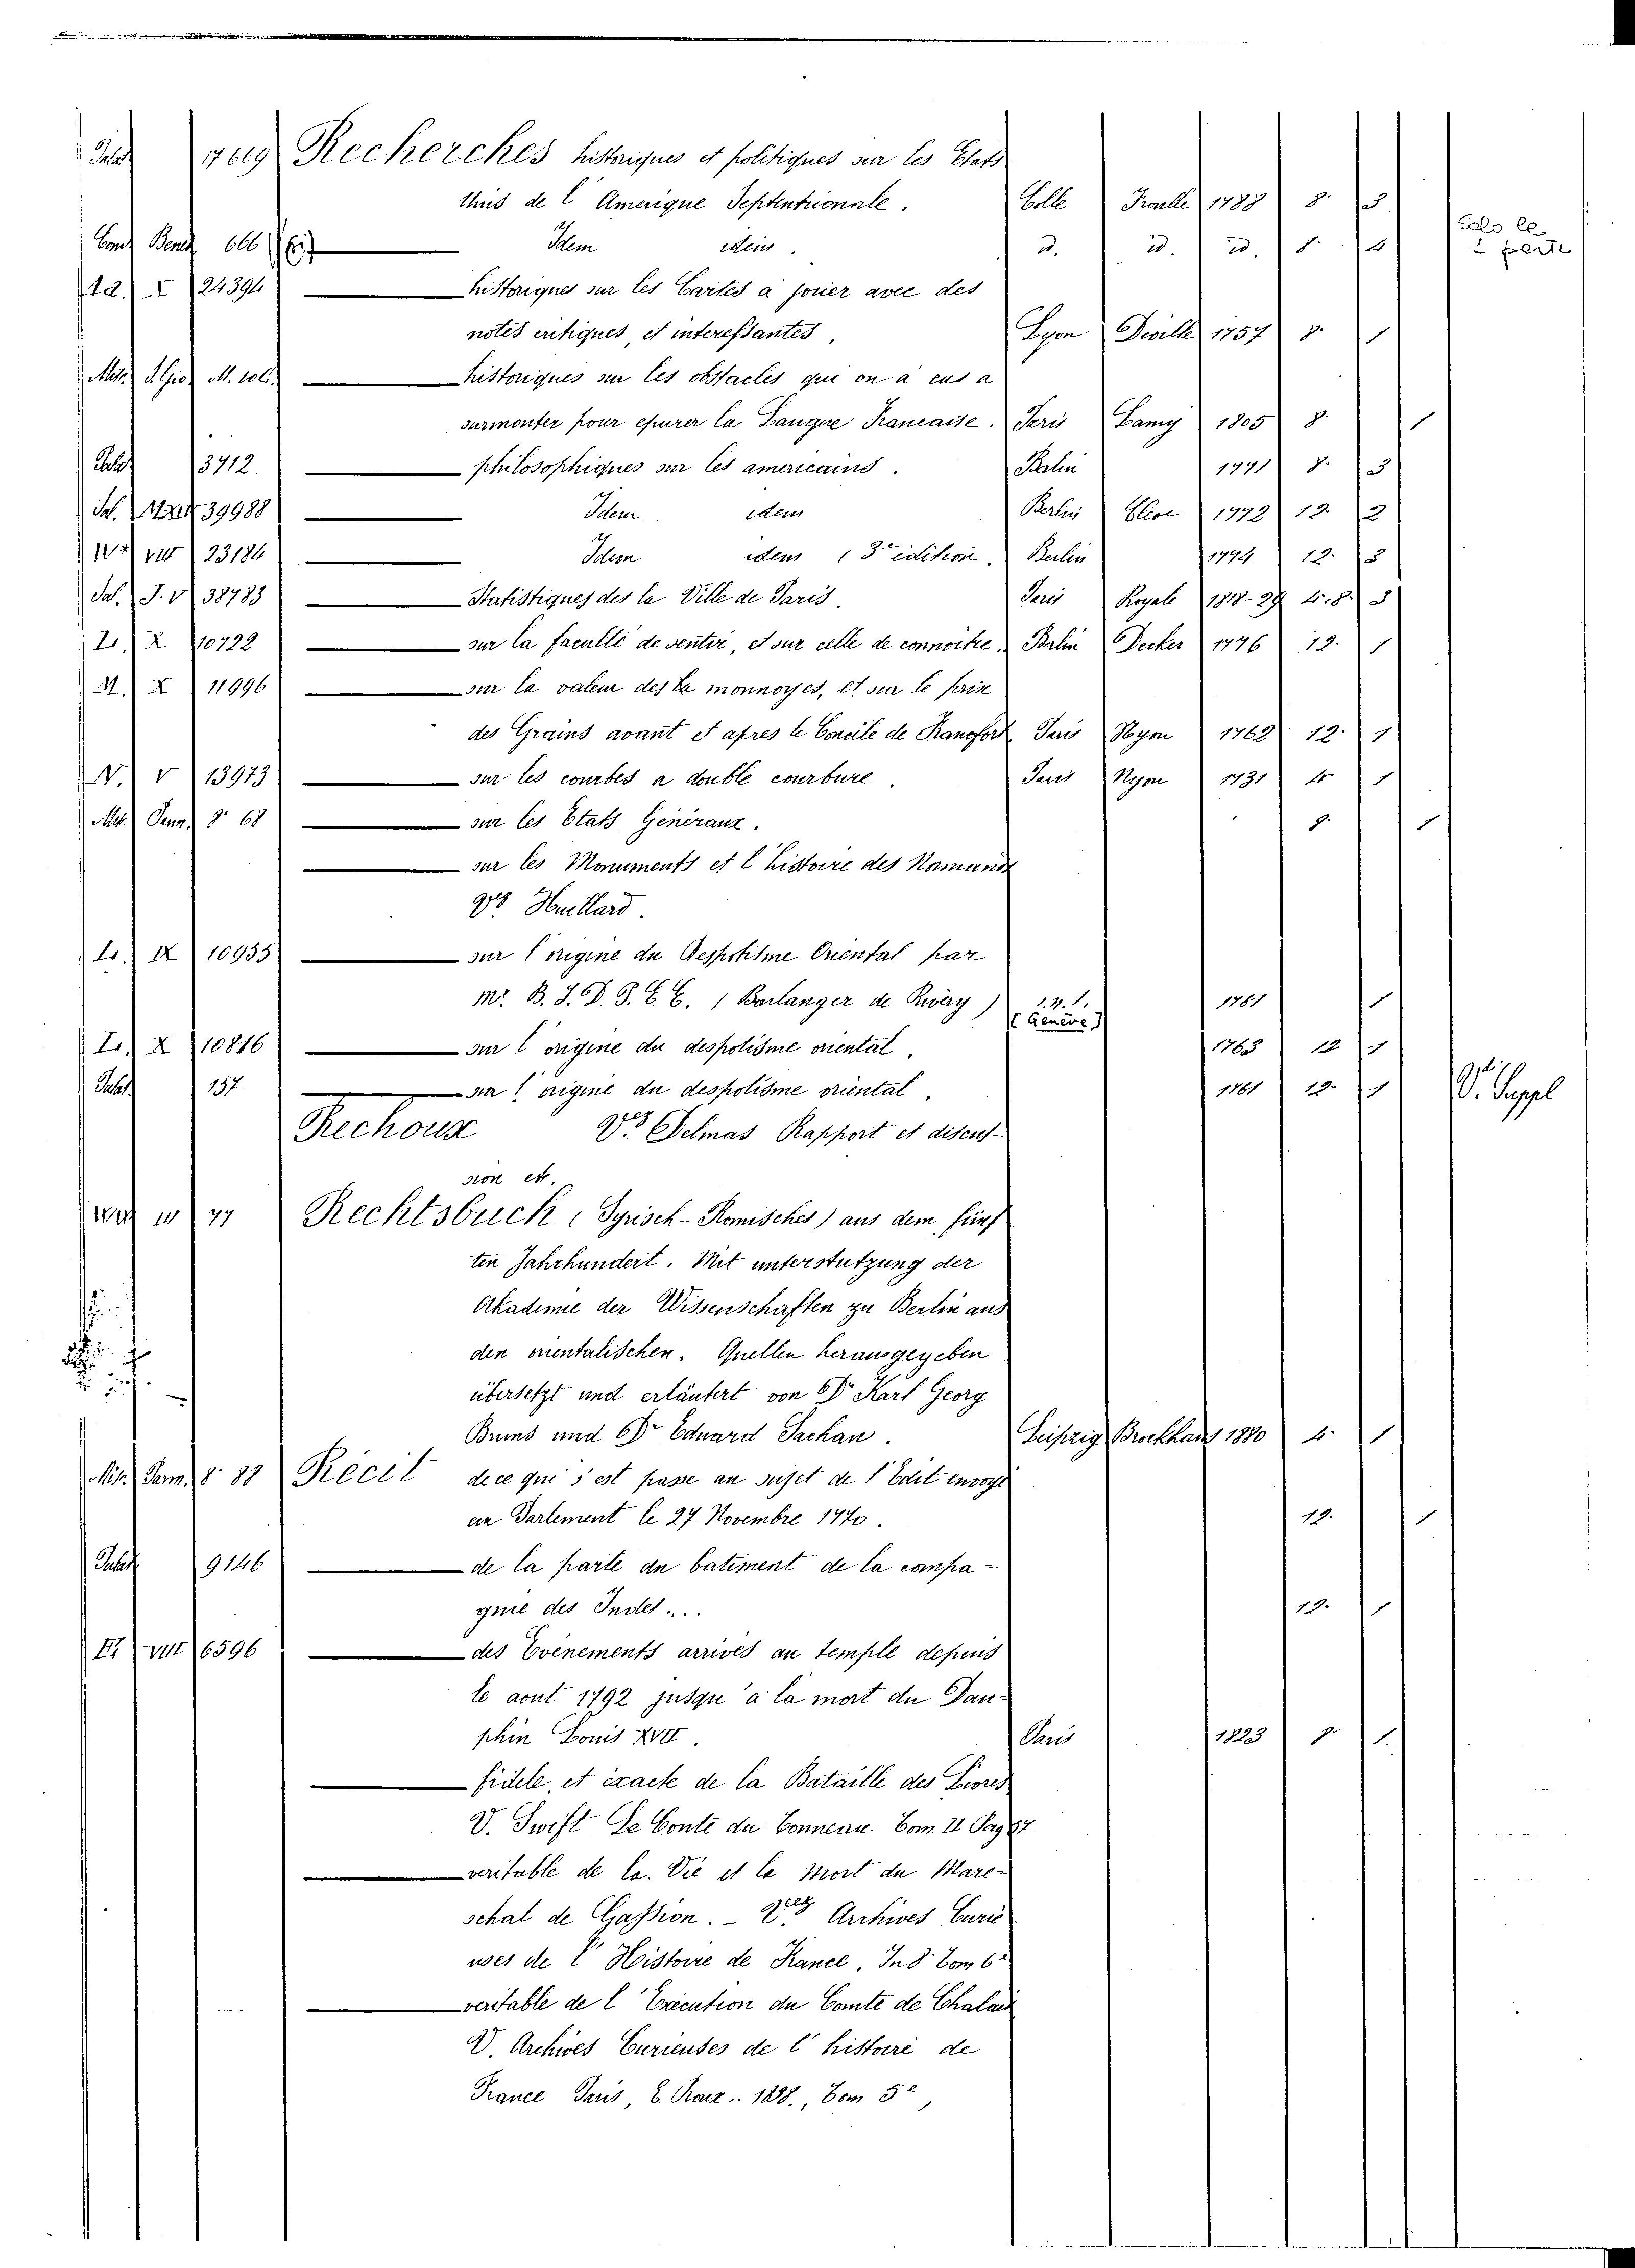 Palat 17669 Recherches historiques et politiques sur les Etats
Unis de l'Amerique Septentrionale. Colle Froulle 1788 8. 3
Conf Benef 666 Idem idem. id. id. id. 8. 4
12. X 24394 historiques sur les Cartes a jouer avec des
notes critiques, et interessantes, Lyon Deville 1757 8. 1
Misc. d. Gio M. historiques sur les obstacles qui on a eus a
surmonter pour epurer la Langue Francaise. Paris Lamy 1805 8. 1
Palat 13712 philosophiques sur les americains. Berlin 1771 8. 3
39988 Idem idem Berlin 1772 12. 2
VIII 23184 Idem idem (3e edition. Berlin 1774 12. 3
Sal. J. V 38783 Statistiques des la Ville de Paris. Paris Royale 1818-29 4.8. 3
X 10722 sur la faculté de sentir, et sur celle de connoitre. Berlin Decker 1776 12. 1
X 11996 sur la valeur des la monnoyes, et sur le prix
des Grains avant et apres le Concile de Francfort Paris Nyon 1762 12. 1
N. V 13973 sur les courbes a double courbure. Paris Nyon 1731 4. 1
Misc. Senn. 8° 68 sur les Etats Généraux. 8. 1
sur les Monuments et l'histoire des Normands
Vez Huillard.
IX 10955 sur l'origine du Despotisme Oriental par
Mr. B. I. D. P. E. C. (Boulanger de Rivery) s. n. l. 1761 1
[Genève]
X 10816 sur l'origine du despotisme oriental. 1763 12 1
Palat 157 sur l'origine du despotisme oriental. 1761 12. 1 V. Suppl
Rechoux Vez Delmas Rapport et discus-
sion et.
77 Rechtsbuch (Syrisch-Romisches) aus dem fünf
ten Jahrhundert. Mit unterstutzung der
Akademie der Wissenschaften zu Berlin aus
den orientalischen. Quellen herausgegeben
übersetzt und erläutert von Dr Karl Georg
Bruns und Dr Eduard Sachau. Leipzig Brockhaus 1880 4. 1
Misc. Senn. 8° 88 Récit de ce qui s'est passe au sujet de l'Edit envoyé
au Parlement le 27 Novembre 1770. 12. 1
Palat 9146 de la parte du batiment de la compa-
gnie des Indes.... 12. 1
VIII 6596 des Evènements arrivés au temple depuis
le aout 1792 jusqu'a la mort du Dau-
phin Louis XVII. Paris 1823 8. 1.
fidele, et exacte de la Bataille des Livres
V. Swift Le Conte du Tonneau Tom. II Pag 87
veritable de la. Vie et la Mort du Mare-
schal de Gassion. - Vez Archives Curie
uses de l'Histoire de France, In 8° Tom 6e
veritable de l'Exécution du Comte de Chalais
V. Archives Curieuses de l'histoire de
France Paris, 1838., Tom. 5e,